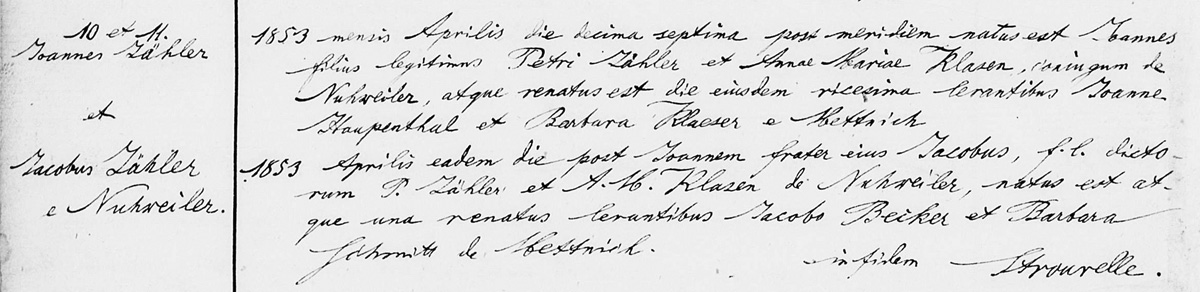 10 et 11.
Joannes Zähler
et
Jacobus Zähler
e Nuhweiler.
1853 mensis Aprilis die decima septima post meridiem natus est Joannes
filius legitimus Petri Zähler et Annae Mariae Klasen, coniugum de
Nuhweiler, atque renatus est die eiusdem vicesima levantibus Joanne
Haupenthal et Barbara Klaeser e Mettnich
1853 Aprilis eadem die post Joannem frater eius Jacobus, f. l. dicto-
rum P. Zähler et A. M. Klasen de Nuhweiler, natus est at-
que una renatus levantibus Jacobo Becker et Barbara
Schmitt de Mettnich.
in fidem Strouvelle.